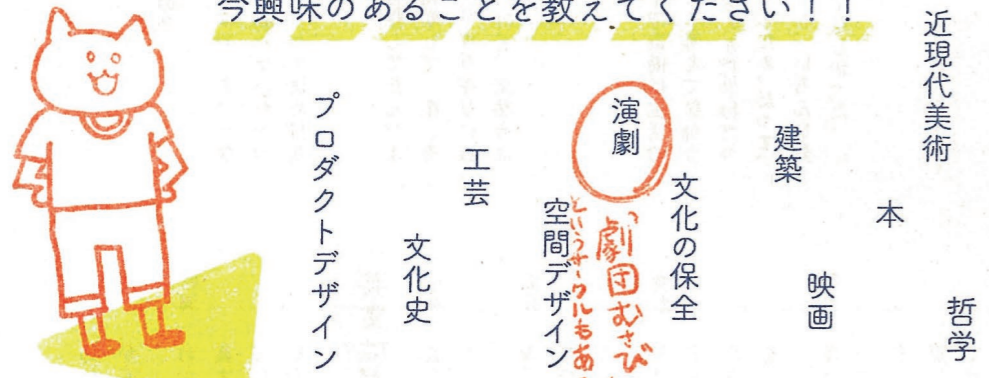 今興味のあることを教えてください！！
近現代美術
哲学
本
映画
建築
文化の保全
演劇
劇団むさび
というサークルもあ
空間デザイン
工芸
文化史
プロダクトデザイン